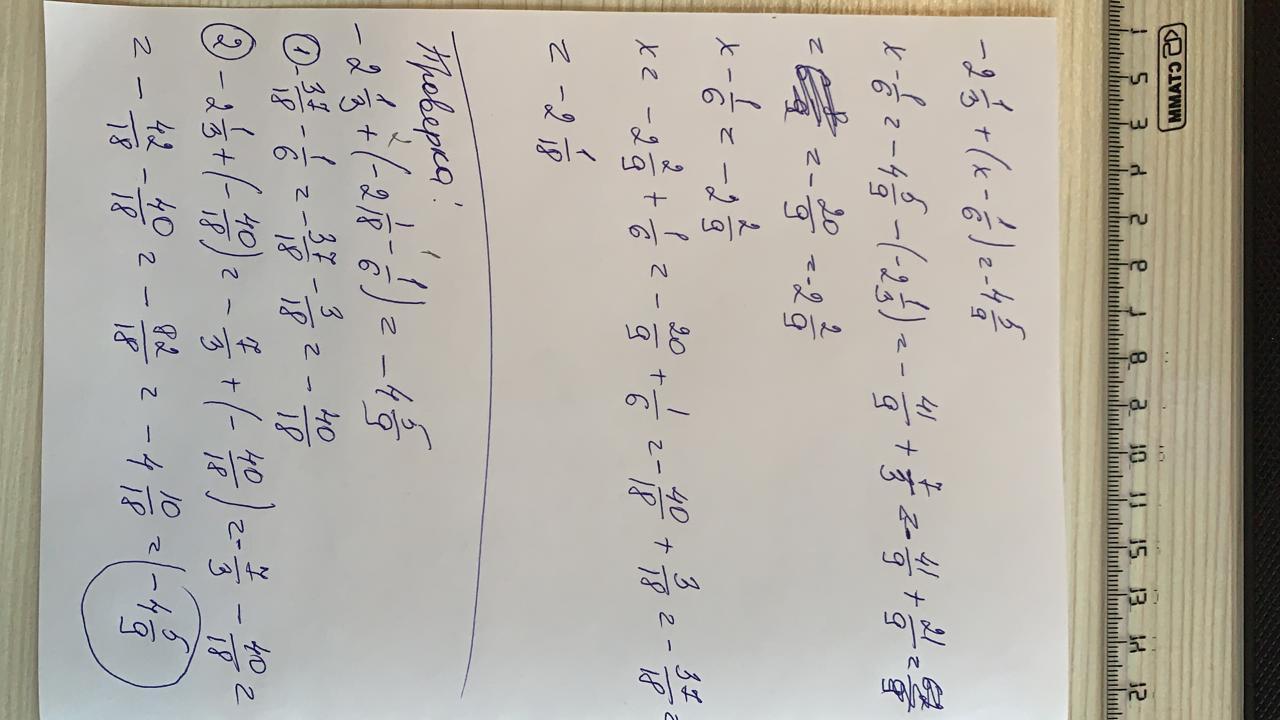 СТАММ
-2 1/3 + (x - 1/6) = -4 5/9
x - 1/6 = -4 5/9 - (-2 1/3) = -41/9 + 7/3 = -41/9 + 21/9 =
= = -20/9 = -2 2/9
x - 1/6 = -2 2/9
x = -2 2/9 + 1/6 = -20/9 + 1/6 = -40/18 + 3/18 = -37/18 =
= -2 1/18
Проверка:
-2 1/3 + (-2 1/18 - 1/6) = -4 5/9
① -37/18 - 1/6 = -37/18 - 3/18 = -40/18
② -2 1/3 + (-40/18) = -7/3 + (-40/18) = -7/3 - 40/18 =
= -42/18 - 40/18 = -82/18 = -4 10/18 = -4 5/9